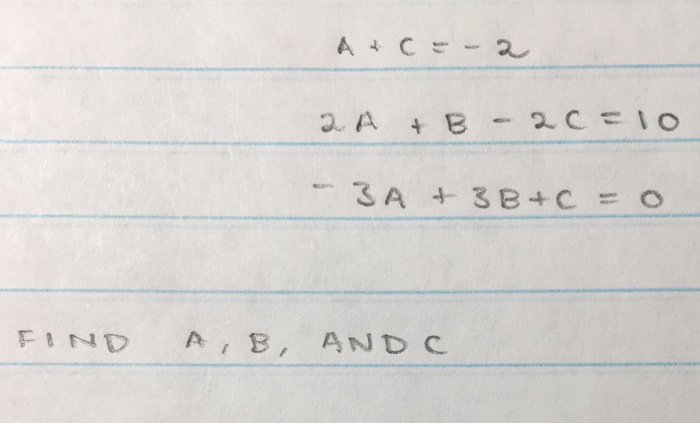 A + C = - 2
2A + B - 2C = 10
- 3A + 3B + C = 0
FIND A, B, AND C